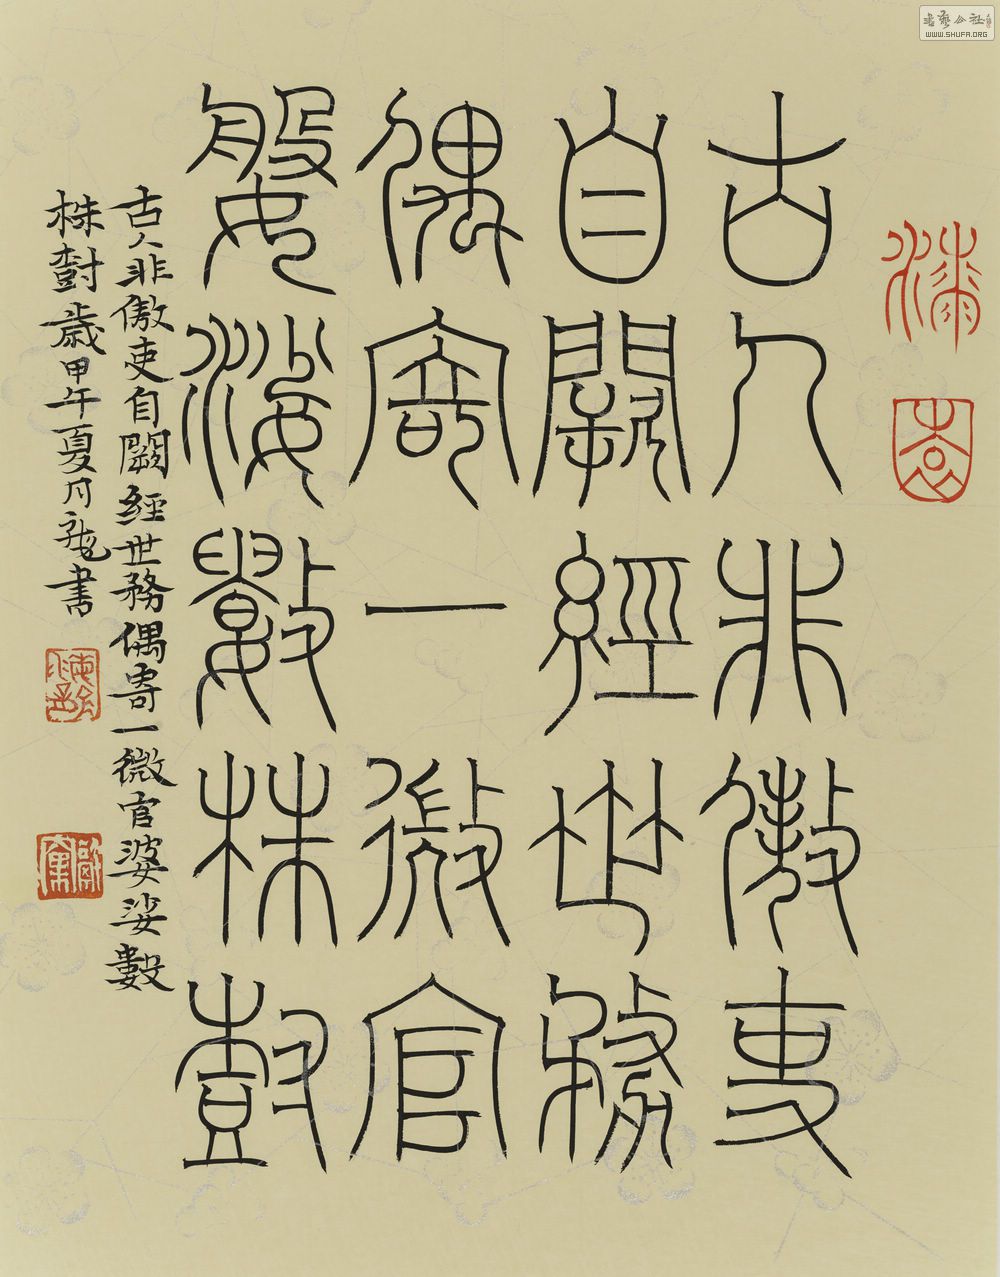 漆園
古人非傲吏
自闕經世務
偶寄一微官
媻娑數株樹
古人非傲吏自闕經世務偶寄一微官婆娑數
株樹歲甲午夏月龍書
書藝公社
WWW.SHUFA.ORG